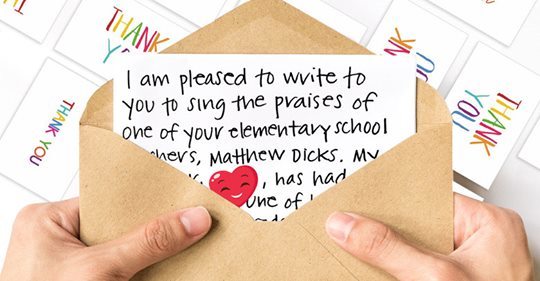 THANK
YOU
THANK
YOU
THANK YOU
THANK
YOU
I am pleased to write to
you to sing the praises of
one of your elementary school
chers, Matthew Dicks. My
, has had
one of